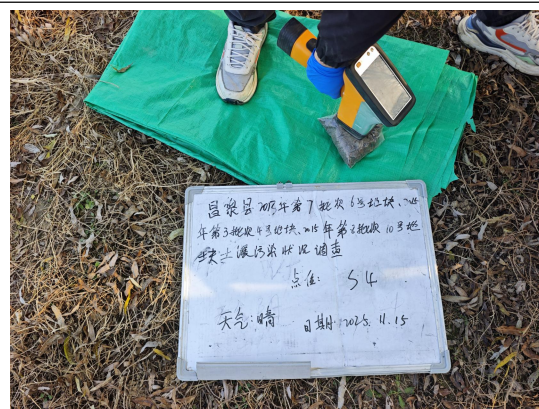 昌黎县2015年第7批次6号地块、2015
年第3批次4号地块、2015年第2批次10号地
块土壤污染状况调查
点位: S4
天气:晴 日期:2025.11.15